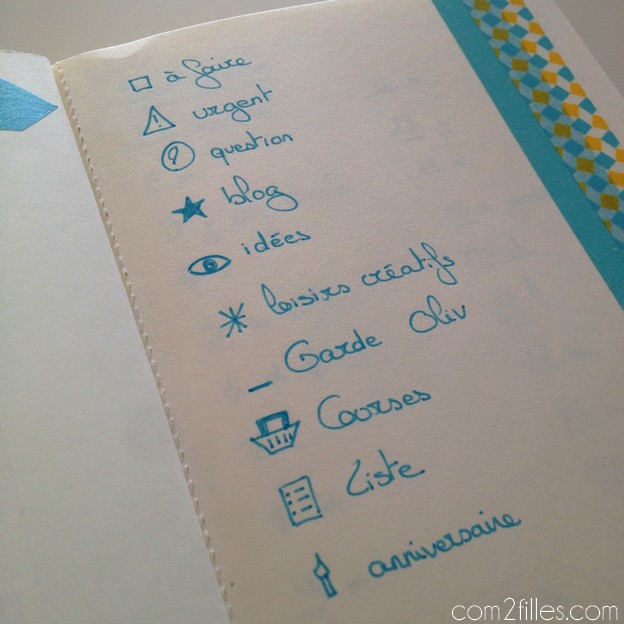 à faire
urgent
question
blog
idées
loisirs créatifs
Garde Oliv
Courses
Liste
anniversaire
com2filles.com